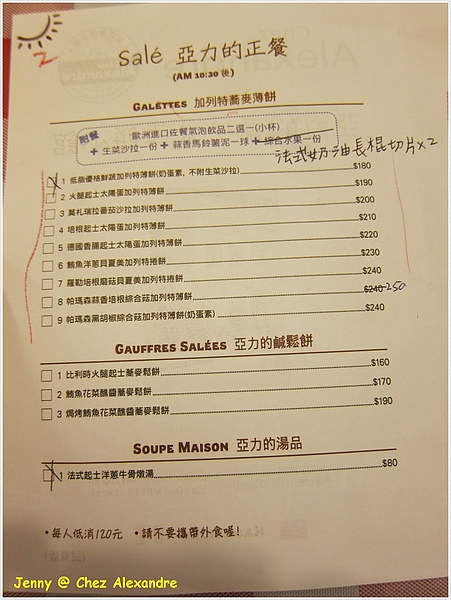 2
Salé 亞力的正餐
(AM 10:30 後)
GALETTES 加列特蕎麥薄餅
附餐 歐洲進口佐餐氣泡飲品二選一(小杯)
+ 生菜沙拉一份 + 蒜香馬鈴薯泥一球 + 綜合水果一份
法式奶油長棍切片x2
1 低脂優格鮮蔬加列特薄餅(奶蛋素, 不附生菜沙拉) $180
2 火腿起士太陽蛋加列特薄餅 $190
3 莫札瑞拉番茄沙拉加列特薄餅 $200
4 培根起士太陽蛋加列特薄餅 $210
5 德國香腸起士太陽蛋加列特薄餅 $220
6 鮪魚洋蔥貝夏美加列特捲餅 $230
7 羅勒培根蘑菇貝夏美加列特捲餅 $240
8 帕瑪森蒜香培根綜合菇加列特薄餅 $240 250
9 帕瑪森黑胡椒綜合菇加列特薄餅(奶蛋素) $240
GAUFFRES SALÉES 亞力的鹹鬆餅
1 比利時火腿起士蕎麥鬆餅 $160
2 鮪魚花菜醮醬蕎麥鬆餅 $170
3 焗烤鮪魚花菜醮醬蕎麥鬆餅 $190
SOUPE MAISON 亞力的湯品
1 法式起士洋蔥牛骨燉湯 $80
•每人低消120元 •請不要攜帶外食喔!
Jenny @ Chez Alexandre